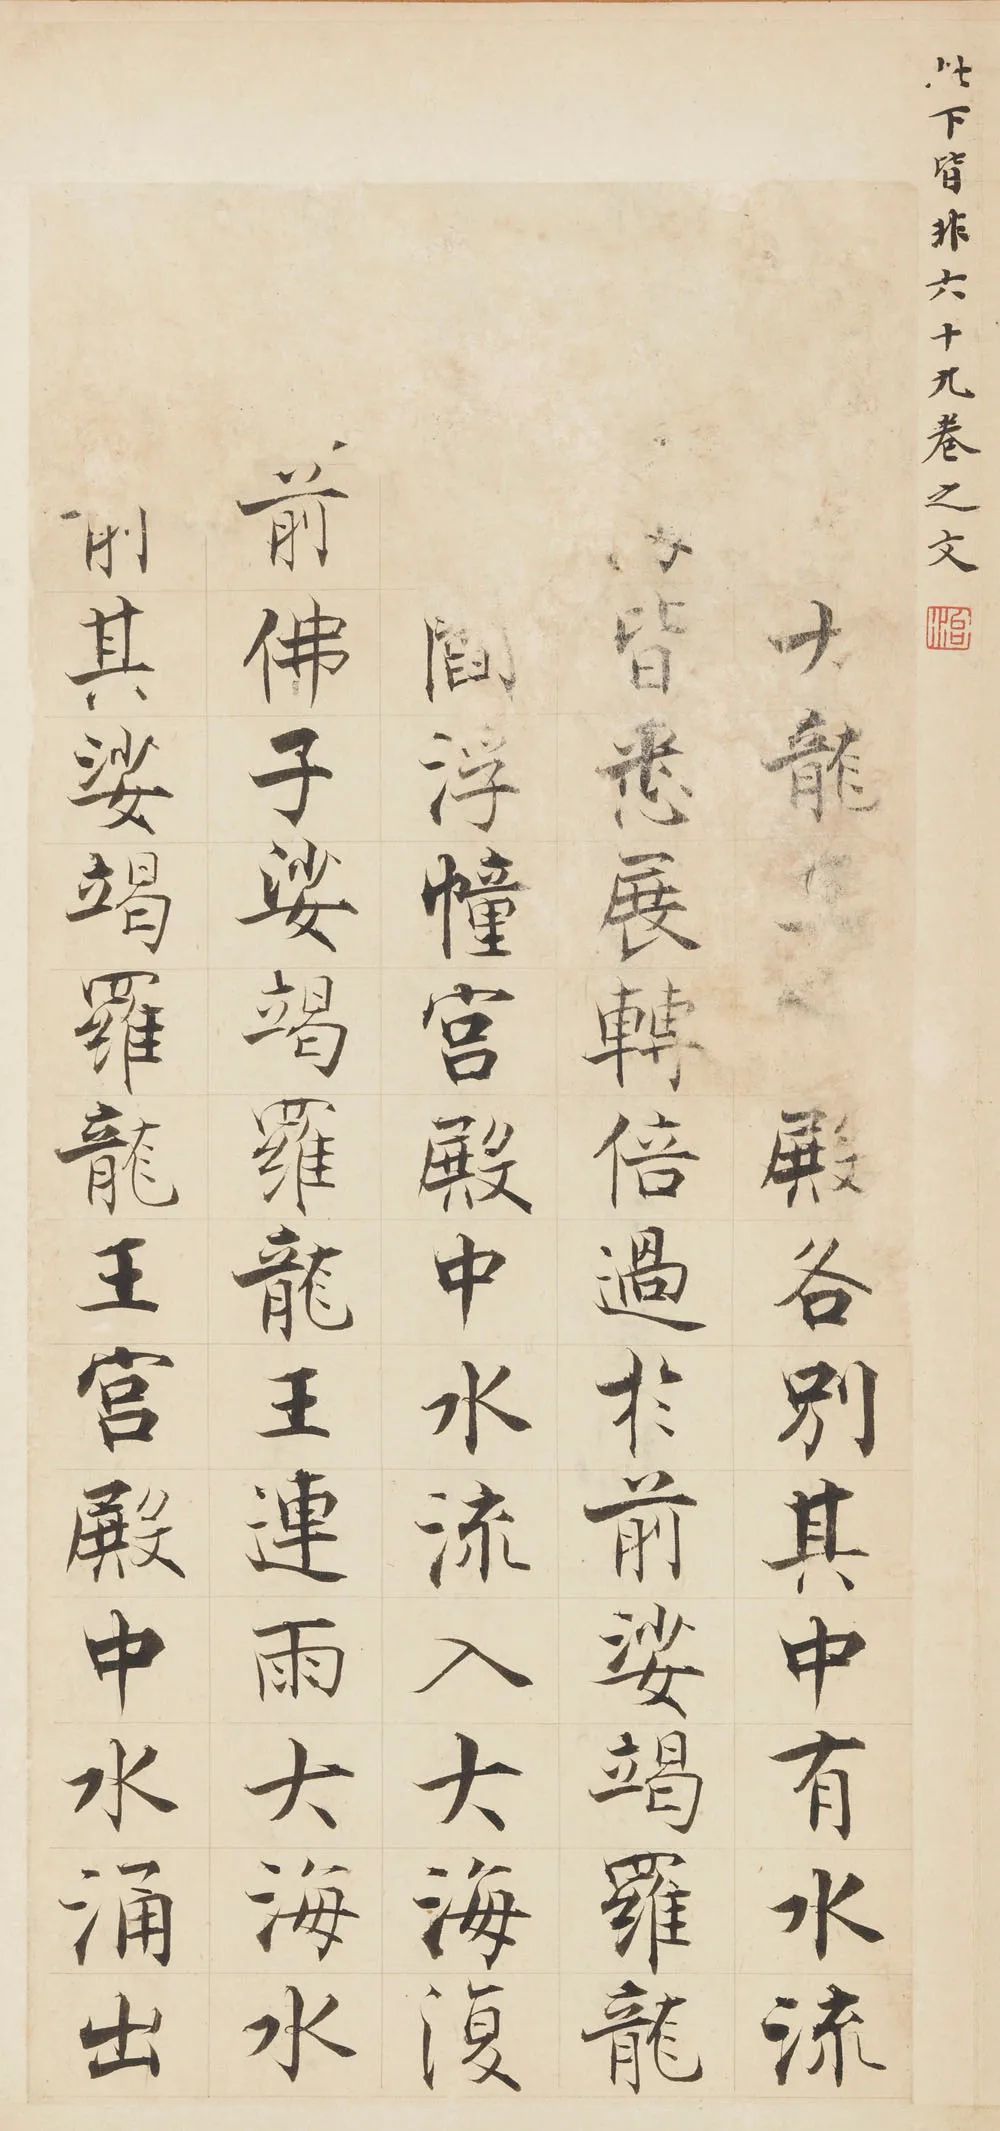 此下皆非六十九卷之文
大龍 殿各別其中有水流
皆悉展轉倍過於前娑竭羅龍
閻浮幢宮殿中水流入大海復
前佛子娑竭羅龍王連雨大海水
前其娑竭羅龍王宮殿中水涌出